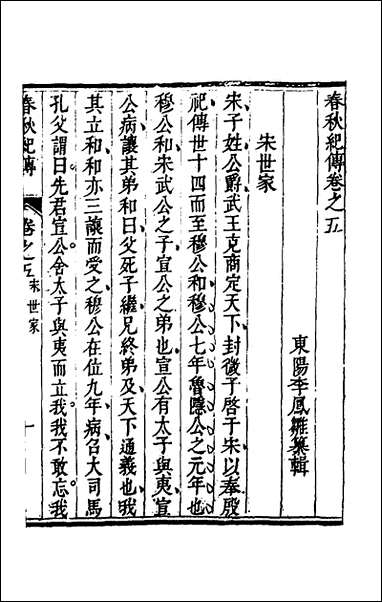 春秋紀傳卷之五
東陽李鳳雛纂輯
宋世家
宋子姓公爵武王克商定天下封微子啓于宋以奉殷
祀傳世十四而至穆公和穆公七年魯隱公之元年也
穆公和宋武公之子宣公之弟也宣公有太子與夷宣
公病讓其弟和曰父死子繼兄終弟及天下通義也我
其立和和亦三讓而受之穆公在位九年病召大司馬
孔父謂曰先君宣公舍太子與夷而立我我不敢忘我
春秋紀傳
卷之五
宋世家
一